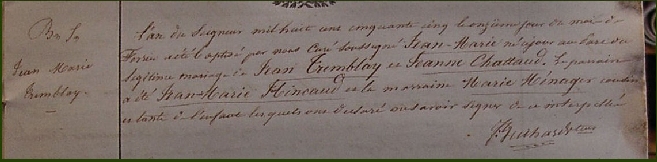 Bp. S.
Jean Marie
Tremblay.
L'an du Seigneur mil huit cent cinquante cinq le onzième jour du mois de
Février a été baptisé par nous Curé soussigné Jean-Marie né ce jour au lac du
légitime mariage de Jean Tremblay et Jeanne Chattaud. Le parrain
a été Jean-Marie Hincaud et la marraine Marie Ménager cousin
et tante à l'enfant lesquels ont déclaré ne savoir signer de ce interpellés